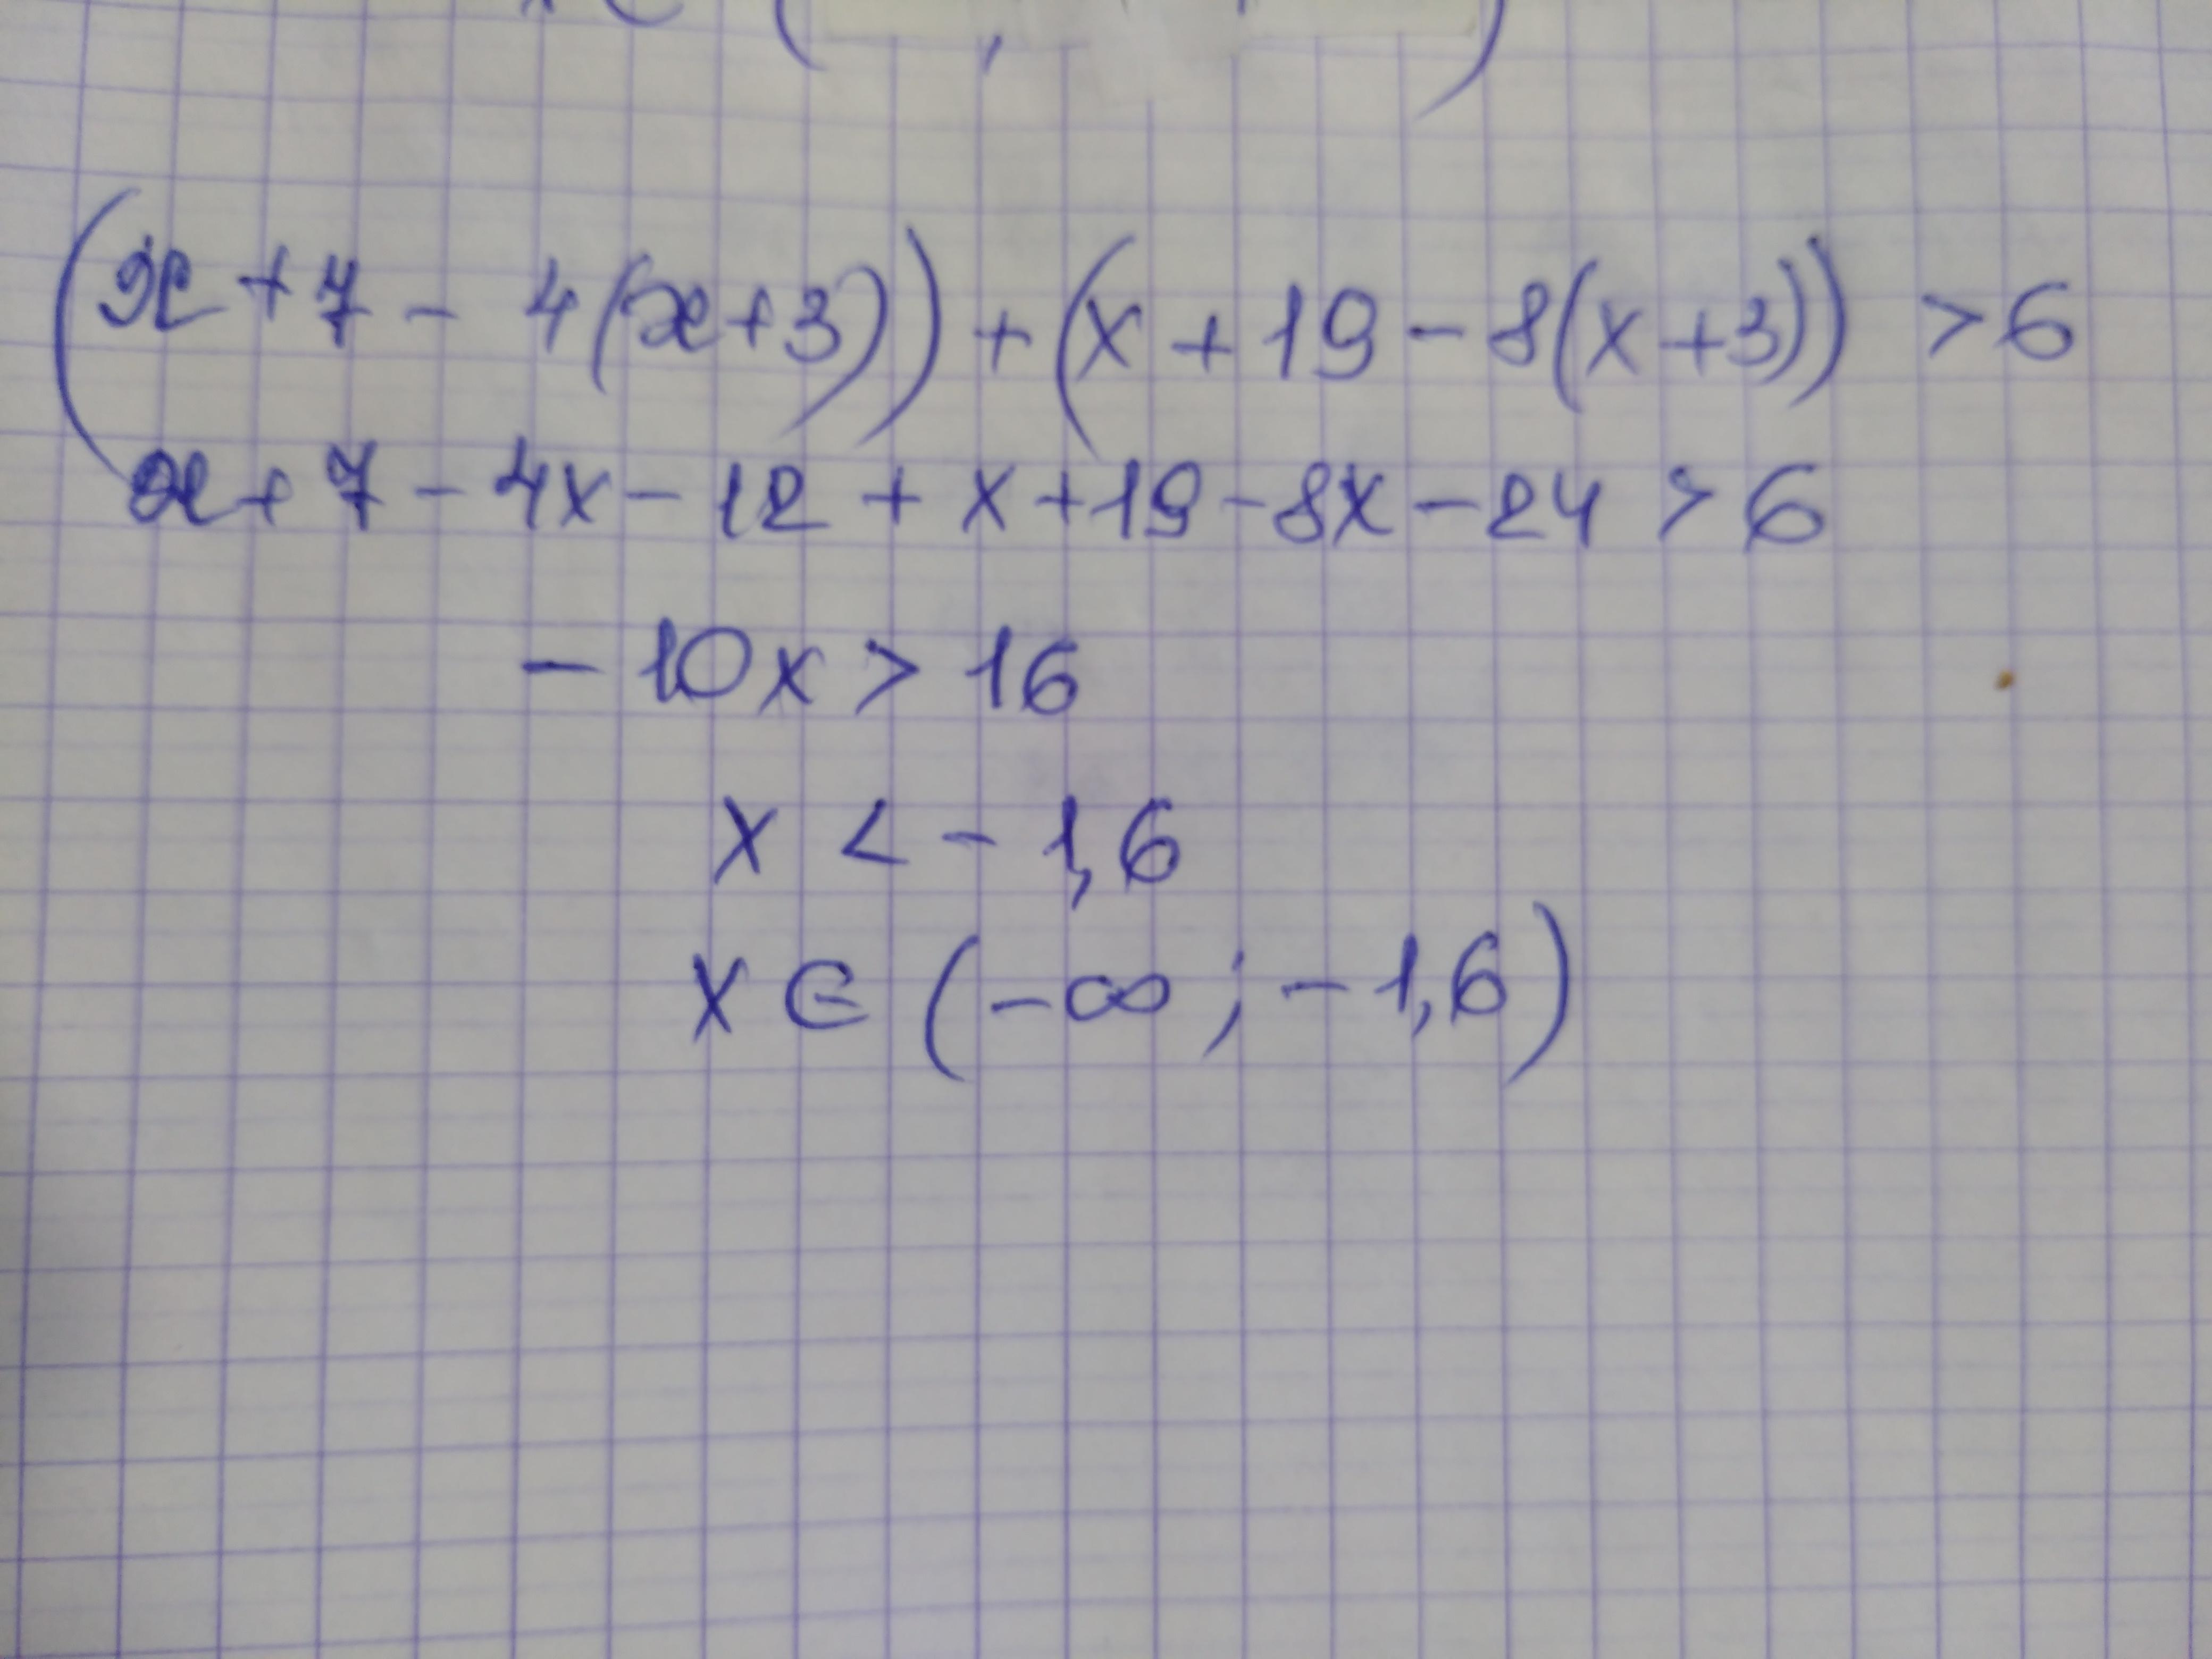 (x+7-4(x+3))+(x+19-8(x+3))>6
x+7-4x-12+x+19-8x-24>6
-10x>16
x<-1,6
x∈(-∞;-1,6)